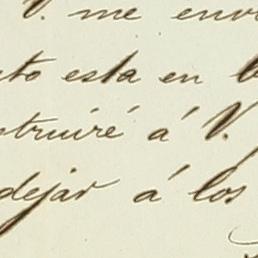 V. me env
to esta en
truiré á V.
dejar á los